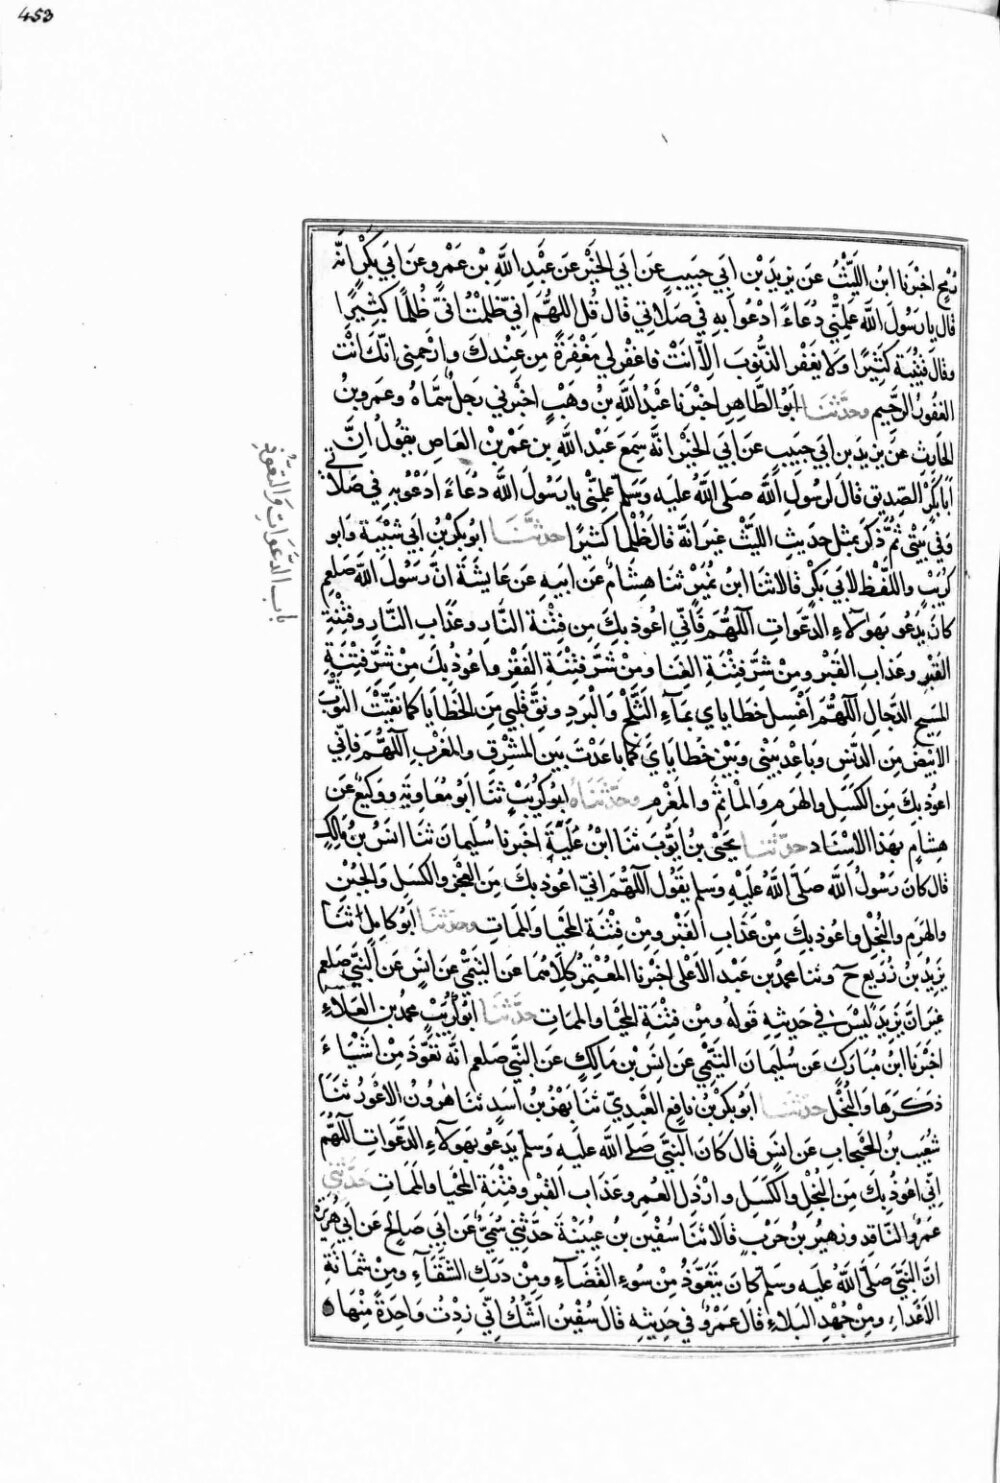 453
رمح اخبرنا ابن الليث عن يزيد بن ابي حبيب عن ابي الخير عن عبد الله بن عمرو عن ابي بكر انه
قال يا رسول الله علمني دعاء ادعوا به في صلاتي قال قل اللهم اني ظلمت نفسي ظلما كثيرا
وقال قتيبة كثيرا ولا يغفر الذنوب الا انت فاغفر لي مغفرة من عندك وارحمني انك انت
الغفور الرحيم وحدثنا ابو الطاهر اخبرنا عبد الله بن وهب اخبرني رجل سماه وعمرو بن
الحارث عن يزيد بن ابي حبيب عن ابي الخير انه سمع عبد الله بن عمرو بن العاص يقول ان
ابا بكر الصديق قال لرسول الله صلى الله عليه وسلم علمني يا رسول الله دعاء ادعو به في صلاتي
وفي بيتي ثم ذكر بمثل حديث الليث غير انه قال ظلما كثيرا حدثنا ابو بكر بن ابي شيبة وابو
كريب واللفظ لابي بكر قالا ثنا ابن نمير ثنا هشام عن ابيه عن عايشة ان رسول الله صلعم
كان يدعو بهولاء الدعوات اللهم فاني اعوذ بك من فتنة النار وعذاب النار وفتنة
القبر وعذاب القبر ومن شر فتنة الغنا ومن شر فتنة الفقر واعوذ بك من شر فتنة
المسيح الدجال اللهم اغسل خطاياي بماء الثلج والبرد ونق قلبي من الخطايا كما نقيت الثوب
الابيض من الدنس وباعد بيني وبين خطاياي كما باعدت بين المشرق والمغرب اللهم فاني
اعوذ بك من الكسل والهرم والماثم والمغرم وحدثناه ابو كريب ثنا ابو معاوية ووكيع عن
هشام بهذا الاسناد حدثنا يحيى بن ايوب ثنا ابن علية اخبرنا سليمان ثنا انس بن مالك
قال كان رسول الله صلى الله عليه وسلم يقول اللهم اني اعوذ بك من العجز والكسل والجبن
والهرم والبخل واعوذ بك من عذاب القبر ومن فتنة المحيا والممات وحدثنا ابو كامل ثنا
يزيد بن زريع ح وثنا محمد بن عبد الاعلى اخبرنا المعتمر كلاهما عن التيمي عن انس عن النبي صلعم
غير ان يزيد ليس في حديثه قوله ومن فتنة المحيا والممات حدثنا ابو كريب محمد بن العلاء
اخبرنا ابن مبارك عن سليمان التيمي عن انس بن مالك عن النبي صلعم انه تعوذ من اشياء
ذكرها والبخل حدثنا ابو بكر بن نافع العبدي ثنا بهز بن اسد ثنا هرون الاعور ثنا
شعيب بن الحبحاب عن انس قال كان النبي صلى الله عليه وسلم يدعو بهولاء الدعوات اللهم
اني اعوذ بك من البخل والكسل وارذل العمر وعذاب القبر وفتنة المحيا والممات حدثني
عمرو الناقد وزهير بن حرب قالا ثنا سفين بن عيينة حدثني سمي عن ابي صالح عن ابي هريرة
ان النبي صلى الله عليه وسلم كان يتعوذ من سوء القضاء ومن درك الشقاء ومن شماتة
الاعداء ومن جهد البلاء قال عمرو في حديثه قال سفين اشك اني زدت واحدة منها
باب الدعوات والتعوذ